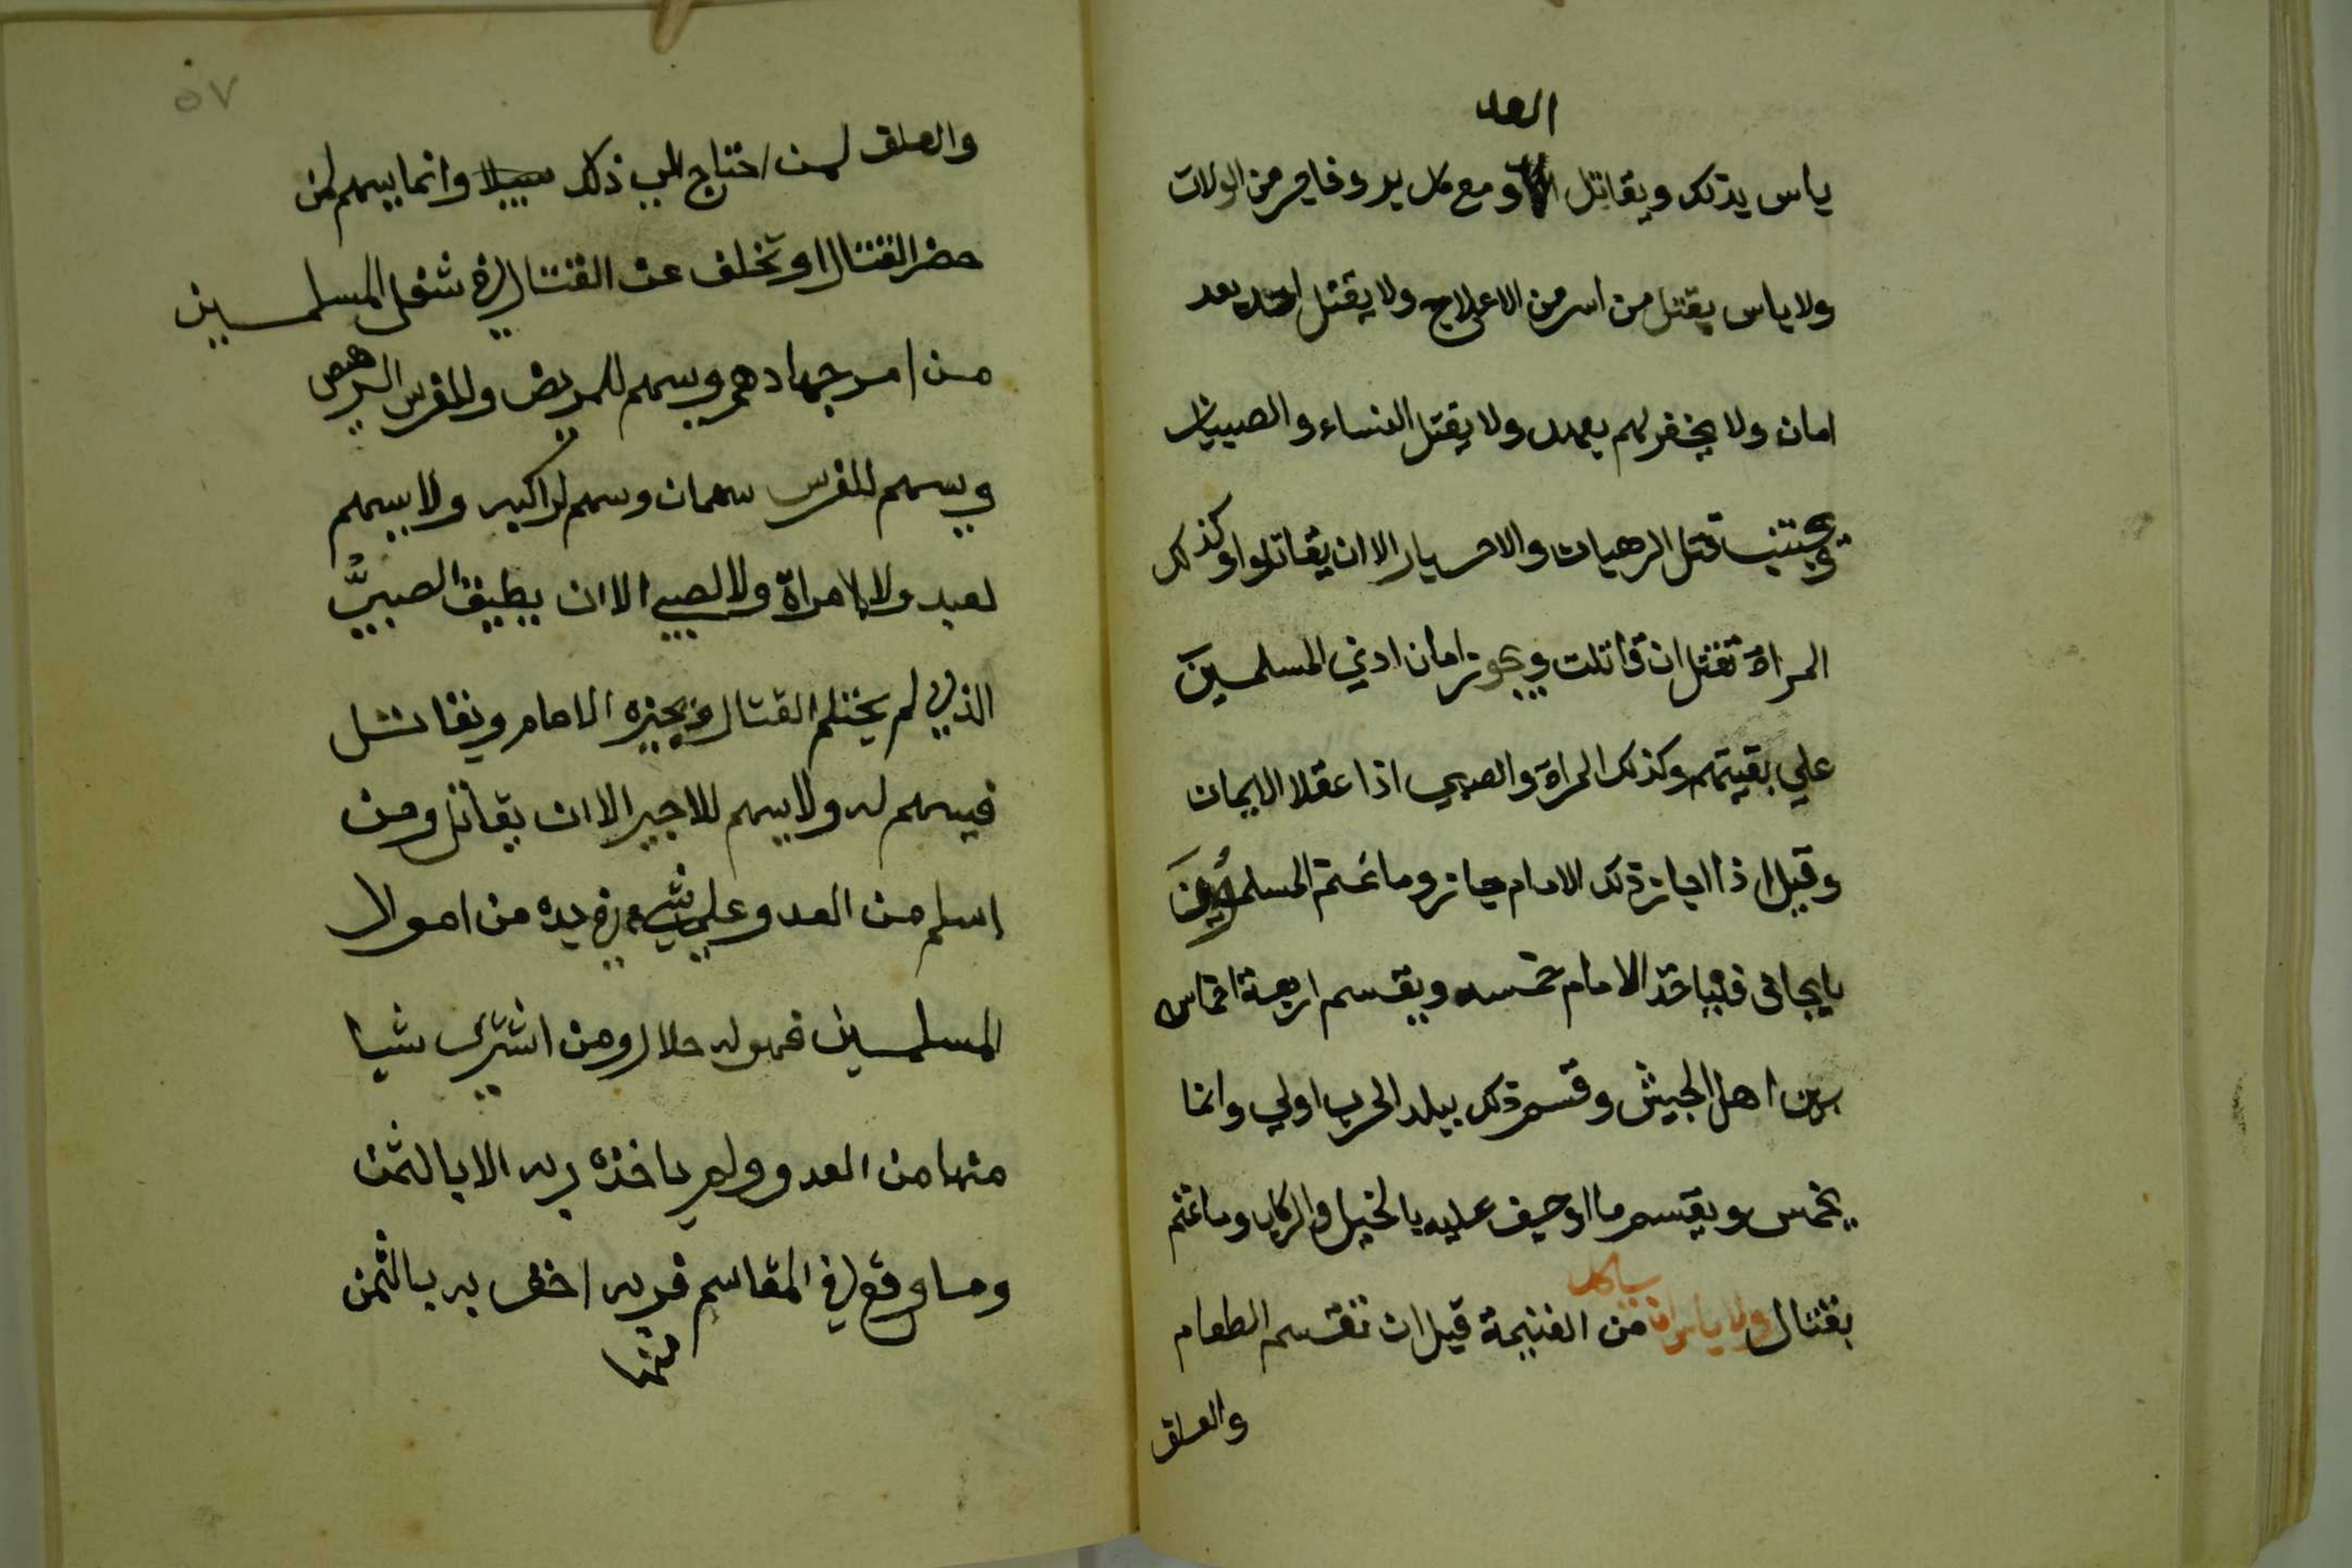 العد
باس بذلك ويقاتل و مع كل بر وفاجر من الولات
ولا باس بقتل من اسر من الاعلاج ولا يقتل احد بعد
امان ولا يخفر لهم بعهد ولا يقتل النساء والصبيان
ويجتنب قتل الرهبان والاحبار الا ان يقاتلوا وكذلك
المراة تقتل ان قاتلت ويجوز امان ادني المسلمين
علي بقيتهم وكذلك المراة والصبي اذا عقلا الايمان
وقيل اذا اجاز ذلك الامام جاز وما غنم المسلمون
بايجاف فلياخذ الامام خمسه ويقسم اربعة اخماس
بين اهل الجيش وقسم ذلك ببلد الحرب اولي وانما
يخمس ويقسم ما اوجف عليه بالخيل والركاب وما غنم
بقتال ولا باس ان ياكل من الغنيمة قبل ان تقسم الطعام
والعلف
٥٧
والعلف لمن احتاج الي ذلك وانما يسهم لمن
حضر القتال او تخلف عن القتال في شغل المسلمين
من امر جهادهم ويسهم للمريض وللفرس الرهيص
ويسهم للفرس سهمان وسهم لراكبه ولا يسهم
لعبد ولا لامراة ولا لصبي الا ان يطيق الصبيُّ
الذي لم يحتلم القتال ويجيزه الامام ويقاتل
فيسهم له ولا يسهم للاجير الا ان يقاتل ومن
اسلم من العدو علي شيء في يده من اموال
المسلمين فهو له حلال ومن اشترى شيا
منها من العدو ولم ياخذه ربه الا بالثمن
وما وقع في المقاسم فربه احق به بالثمن